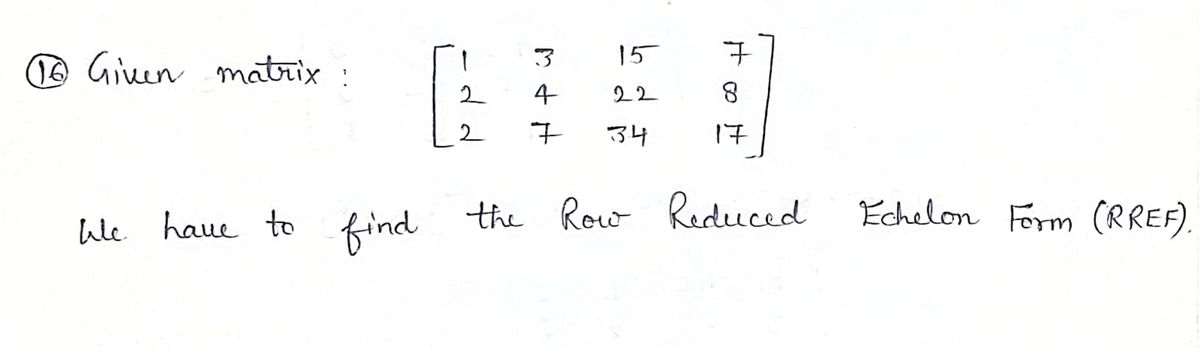 16 Given matrix : [ 1 3 15 7
2 4 22 8
2 7 34 17 ]
We have to find the Row Reduced Echelon Form (RREF).